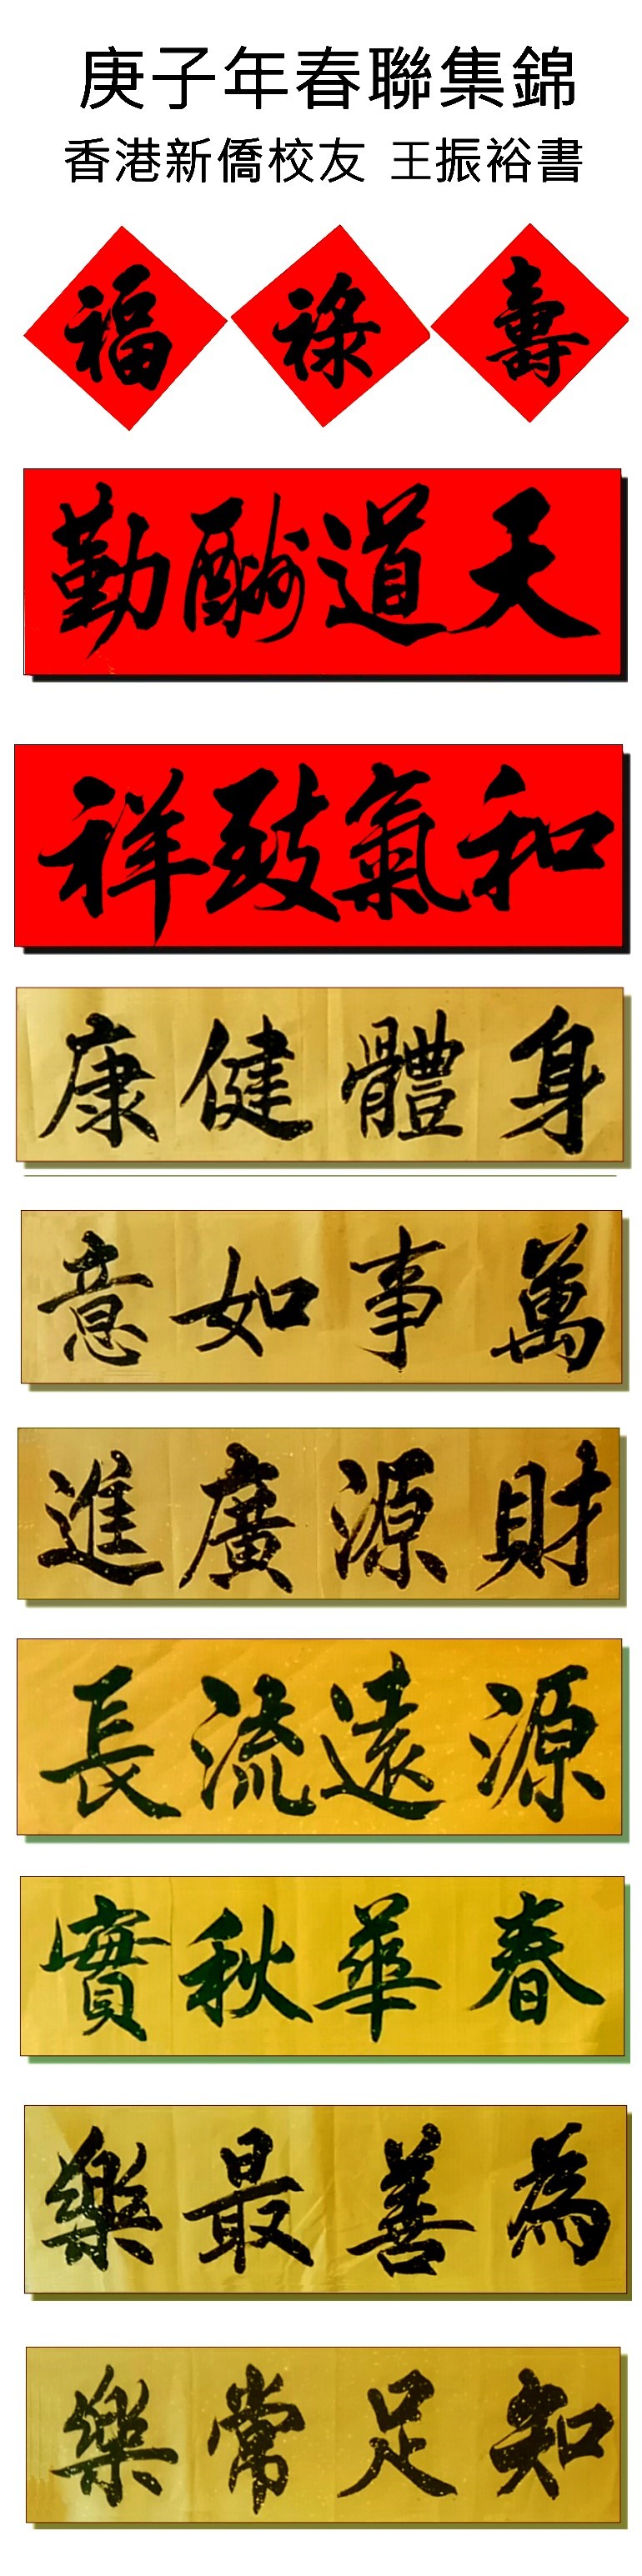 庚子年春聯集錦
香港新僑校友 王振裕書
福 祿 壽
天道酬勤
和氣致祥
身體健康
萬事如意
財源廣進
源遠流長
春華秋實
為善最樂
知足常樂